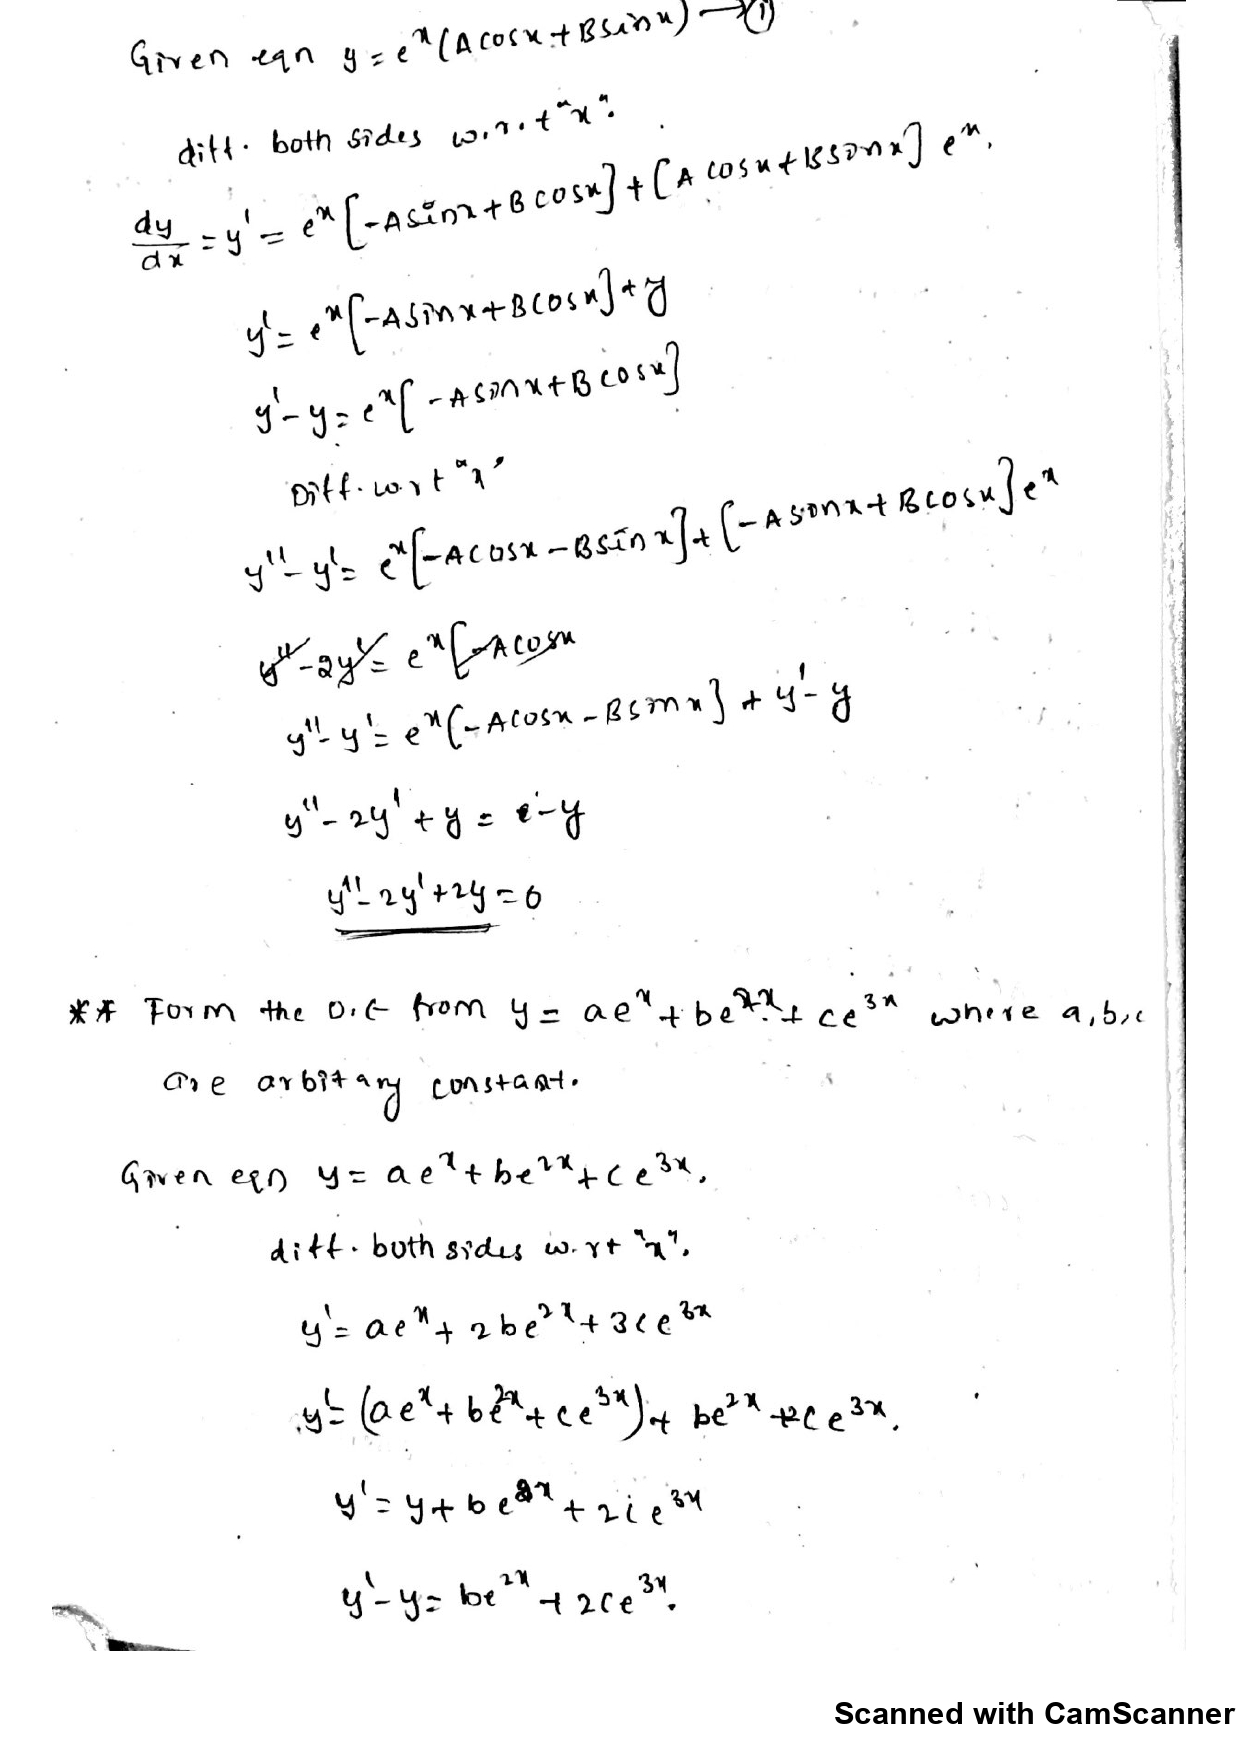 Given eqn y = e^x (A cosx + B sinx) → ①
diff. both sides w.r.t "x".
dy/dx = y' = e^x [-A sinx + B cosx] + [A cosx + B sinx] e^x.
y' = e^x [-A sinx + B cosx] + y
y' - y = e^x [-A sinx + B cosx]
Diff. w.r.t "x"
y'' - y' = e^x [-A cosx - B sinx] + [-A sinx + B cosx] e^x
y'' - 2y' = e^x [-A cosx
y'' - y' = e^x [-A cosx - B sinx] + y' - y
y'' - 2y' + y = -y
y'' - 2y' + 2y = 0
** Form the D.E from y = ae^x + be^2x + ce^3x where a, b, c
are arbitary constant.
Given eqn y = ae^x + be^2x + ce^3x.
diff. both sides w.r.t "x".
y' = ae^x + 2be^2x + 3ce^3x
y' = (ae^x + be^2x + ce^3x) + be^2x + 2ce^3x.
y' = y + be^2x + 2ce^3x
y' - y = be^2x + 2ce^3x.
Scanned with CamScanner